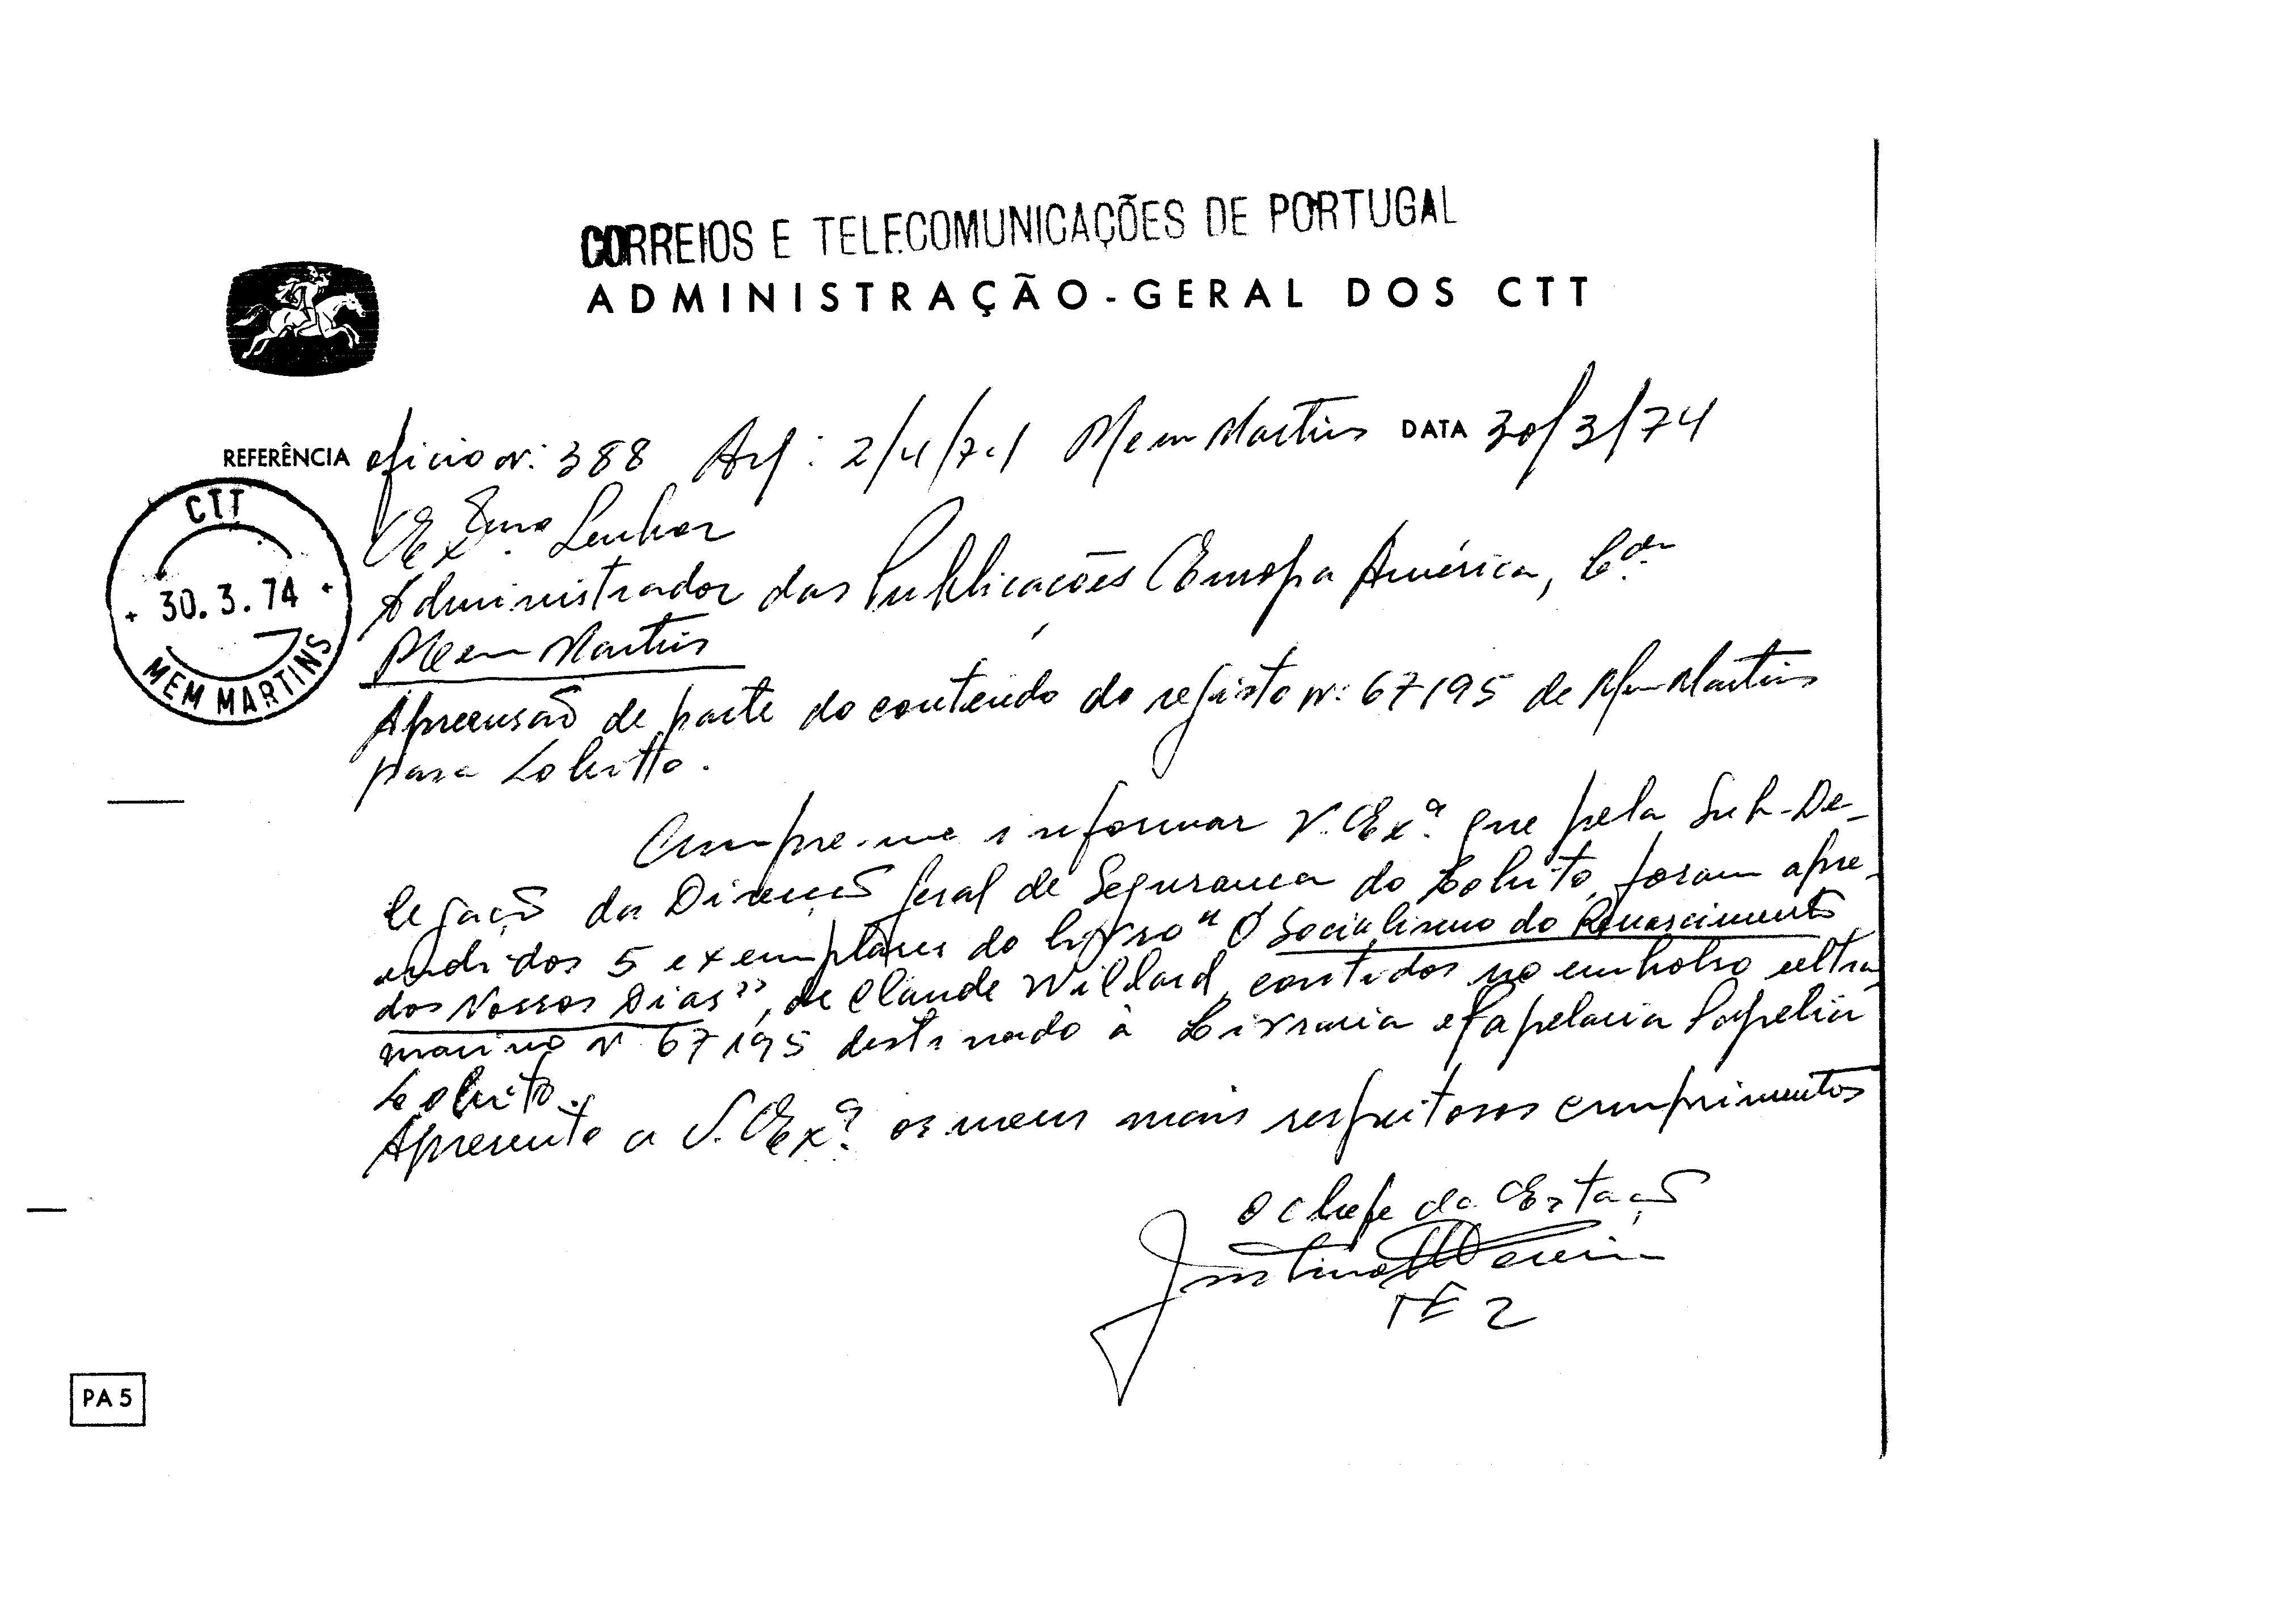 CORREIOS E TELECOMUNICAÇÕES DE PORTUGAL
ADMINISTRAÇÃO-GERAL DOS CTT
REFERÊNCIA oficio nº: 388 2/4/71 Mem Martins DATA 30/3/74
CTT
30.3.74
MEM MARTINS
Exmo. Senhor
Administrador das Publicações Europa América,
Mem Martins
Apreensão de parte do conteúdo do registo nº: 67195 de Mem Martins
para Lobitto.
Cumpre-me informar V. Exª. que pela Sub-De-
legação da Direcção Geral de Segurança do Lobito, foram apre-
endidos 5 exemplares do livro "O Socialismo do Renascimento
dos Nossos Dias", de Claude Willard, contidos no embolso ultra-
marino nº 67195 destinado à Livraria e Papelaria Papelia
Lobito.
Apresento a V. Exª. os meus mais respeitosos cumprimentos
O Chefe da Estação
PA 5